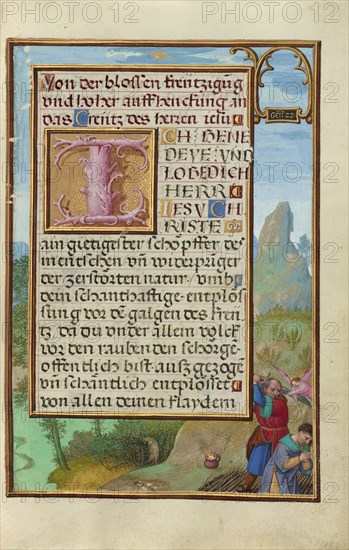 Von der blossen kreutzigung
vnd hoher auffhenckung an
das Creutz des herren ihu
ICH BENE
DEYE VND
LOBE DICH
HERR
IESV CH
RISTE
ain guetigester schopffer des
menschen vn̄ widerpringer
der zerstörten natur vmb
dein schanthafftige entplos
sung vor dē galgen des kreu
tz da du vnder allem volck
vor den rauben den scherge
offentlich bist auszgezoge
vn̄ schantlich entplosset
von allen deinen klaydern